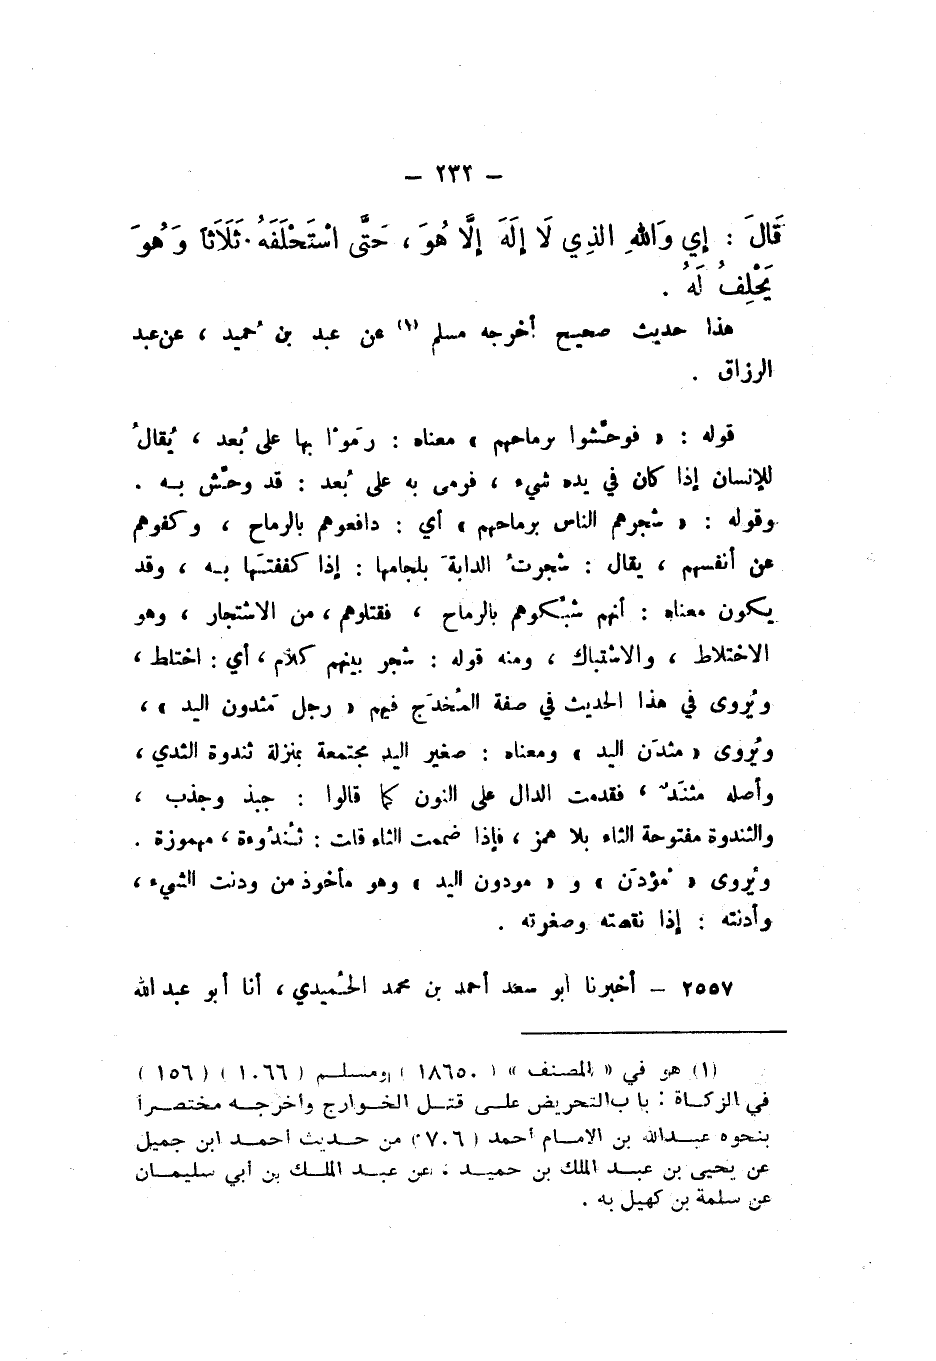 – ٢٣٢ –
قَالَ : إِي وَاللهِ الذِي لَا إِلَهَ إِلَّا هُوَ ، حَتَّى اسْتَحْلَفَهُ ثَلَاثاً وَهُوَ
يَحْلِفُ لَهُ .
هذا حديث صحيح أخرجه مسلم (١) عن عبد بن حُميد ، عن عبد
الرزاق .
قوله : « فوحَّشوا برماحهم » معناه : رَمَوْا بها على بُعد ، يُقالُ
للإنسان إذا كان في يده شيء ، فرمى به على بُعد : قد وحَّش بــه .
وقوله : « شجرهم الناس برماحهم » أي : دافعوهم بالرماح ، وكفوهم
عن أنفسهم ، يقال : شجرتُ الدابةَ بلجامها : إذا كففتَها بــه ، وقد
يكون معناه : أنهم شبَّكوهم بالرماح ، فقتلوهم ، من الاشتجار ، وهو
الاختلاط ، والاشتباك ، ومنه قوله : شجر بينهم كلام ، أي : اختلط ،
ويُروى في هذا الحديث في صفة المُخدَج فيهم « رجل مَثدون اليد » ،
ويُروى « مثدَن اليد » ومعناه : صغير اليد مجتمعة بمنزلة ثندوة الثدي ،
وأصله مثنَدٌ ، فقدمت الدال على النون كما قالوا : جبذ وجذب ،
والثندوة مفتوحة الثاء بلا همز ، فإذا ضممت الثاء قلت : ثُندُوءة ، مهموزة .
ويُروى « مُؤدَن » و « مودون اليد » وهو مأخوذ من ودنت الشيء ،
وأدنته : إذا نقصته وصغرته .
٢٥٥٧ – أخبرنا أبو سعد أحمد بن محمد الحُميدي ، أنا أبو عبد الله
(١) هو في « المصنف » ( ١٨٦٥٠ ) ومسلــم ( ١٠٦٦ ) ( ١٥٦ )
في الزكــاة : باب التحريض علــى قتــل الخــوارج وأخرجــه مختصــراً
بنحوه عبــدالله بن الامــام أحمد ( ٧٠٦ ) من حــديث أحمــد ابن جميل
عن يحيى بن عبــد الملك بن حميــد ، عن عبــد الملــك بن أبي سليمــان
عن سلمة بن كهيل به .